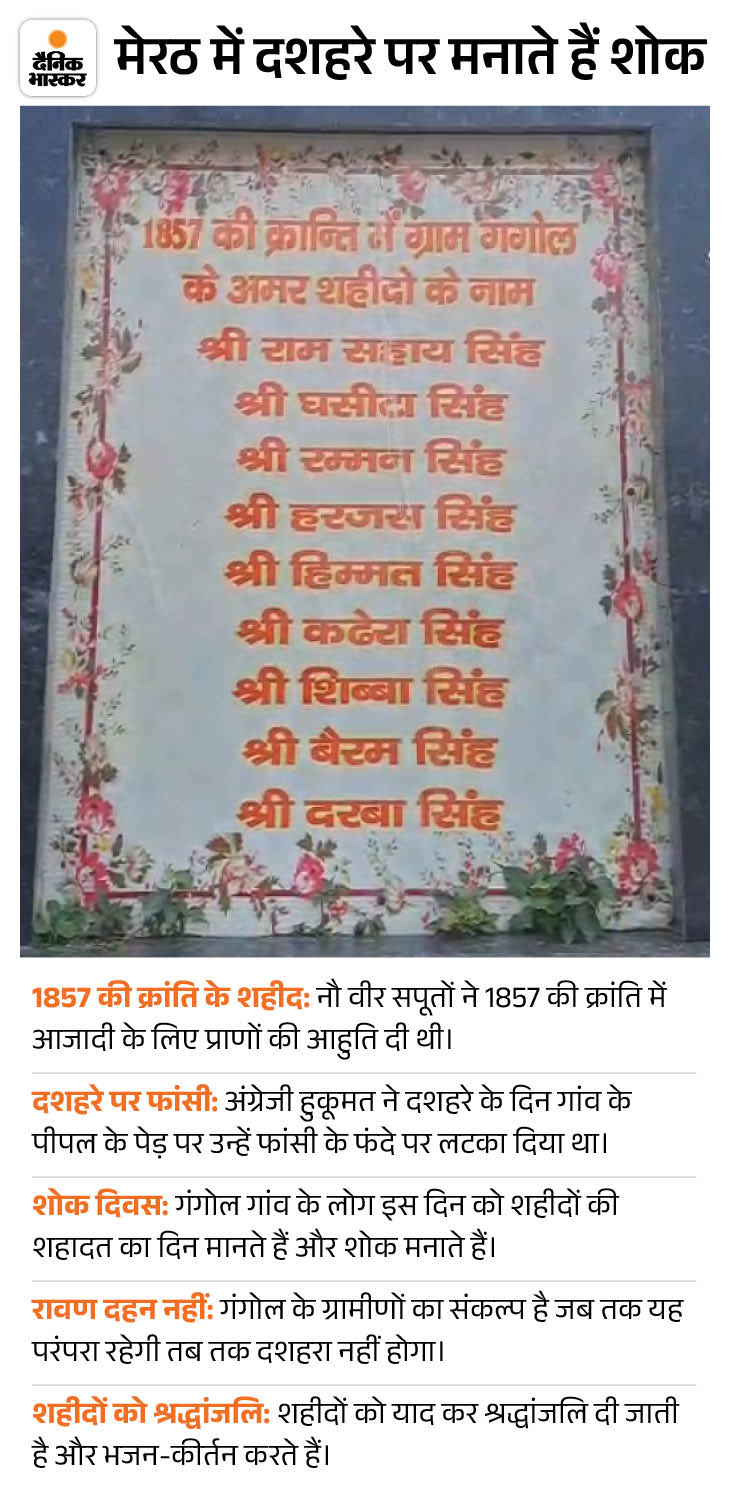 दैनिक
भास्कर
मेरठ में दशहरे पर मनाते हैं शोक
1857 की क्रान्ति में ग्राम गगोल
के अमर शहीदो के नाम
श्री राम सहाय सिंह
श्री घसीटा सिंह
श्री रम्मन सिंह
श्री हरजस सिंह
श्री हिम्मत सिंह
श्री कढेरा सिंह
श्री शिब्बा सिंह
श्री बैरम सिंह
श्री दरबा सिंह
1857 की क्रांति के शहीद: नौ वीर सपूतों ने 1857 की क्रांति में
आजादी के लिए प्राणों की आहुति दी थी।
दशहरे पर फांसी: अंग्रेजी हुकूमत ने दशहरे के दिन गांव के
पीपल के पेड़ पर उन्हें फांसी के फंदे पर लटका दिया था।
शोक दिवस: गंगोल गांव के लोग इस दिन को शहीदों की
शहादत का दिन मानते हैं और शोक मनाते हैं।
रावण दहन नहीं: गंगोल के ग्रामीणों का संकल्प है जब तक यह
परंपरा रहेगी तब तक दशहरा नहीं होगा।
शहीदों को श्रद्धांजलि: शहीदों को याद कर श्रद्धांजलि दी जाती
है और भजन-कीर्तन करते हैं।